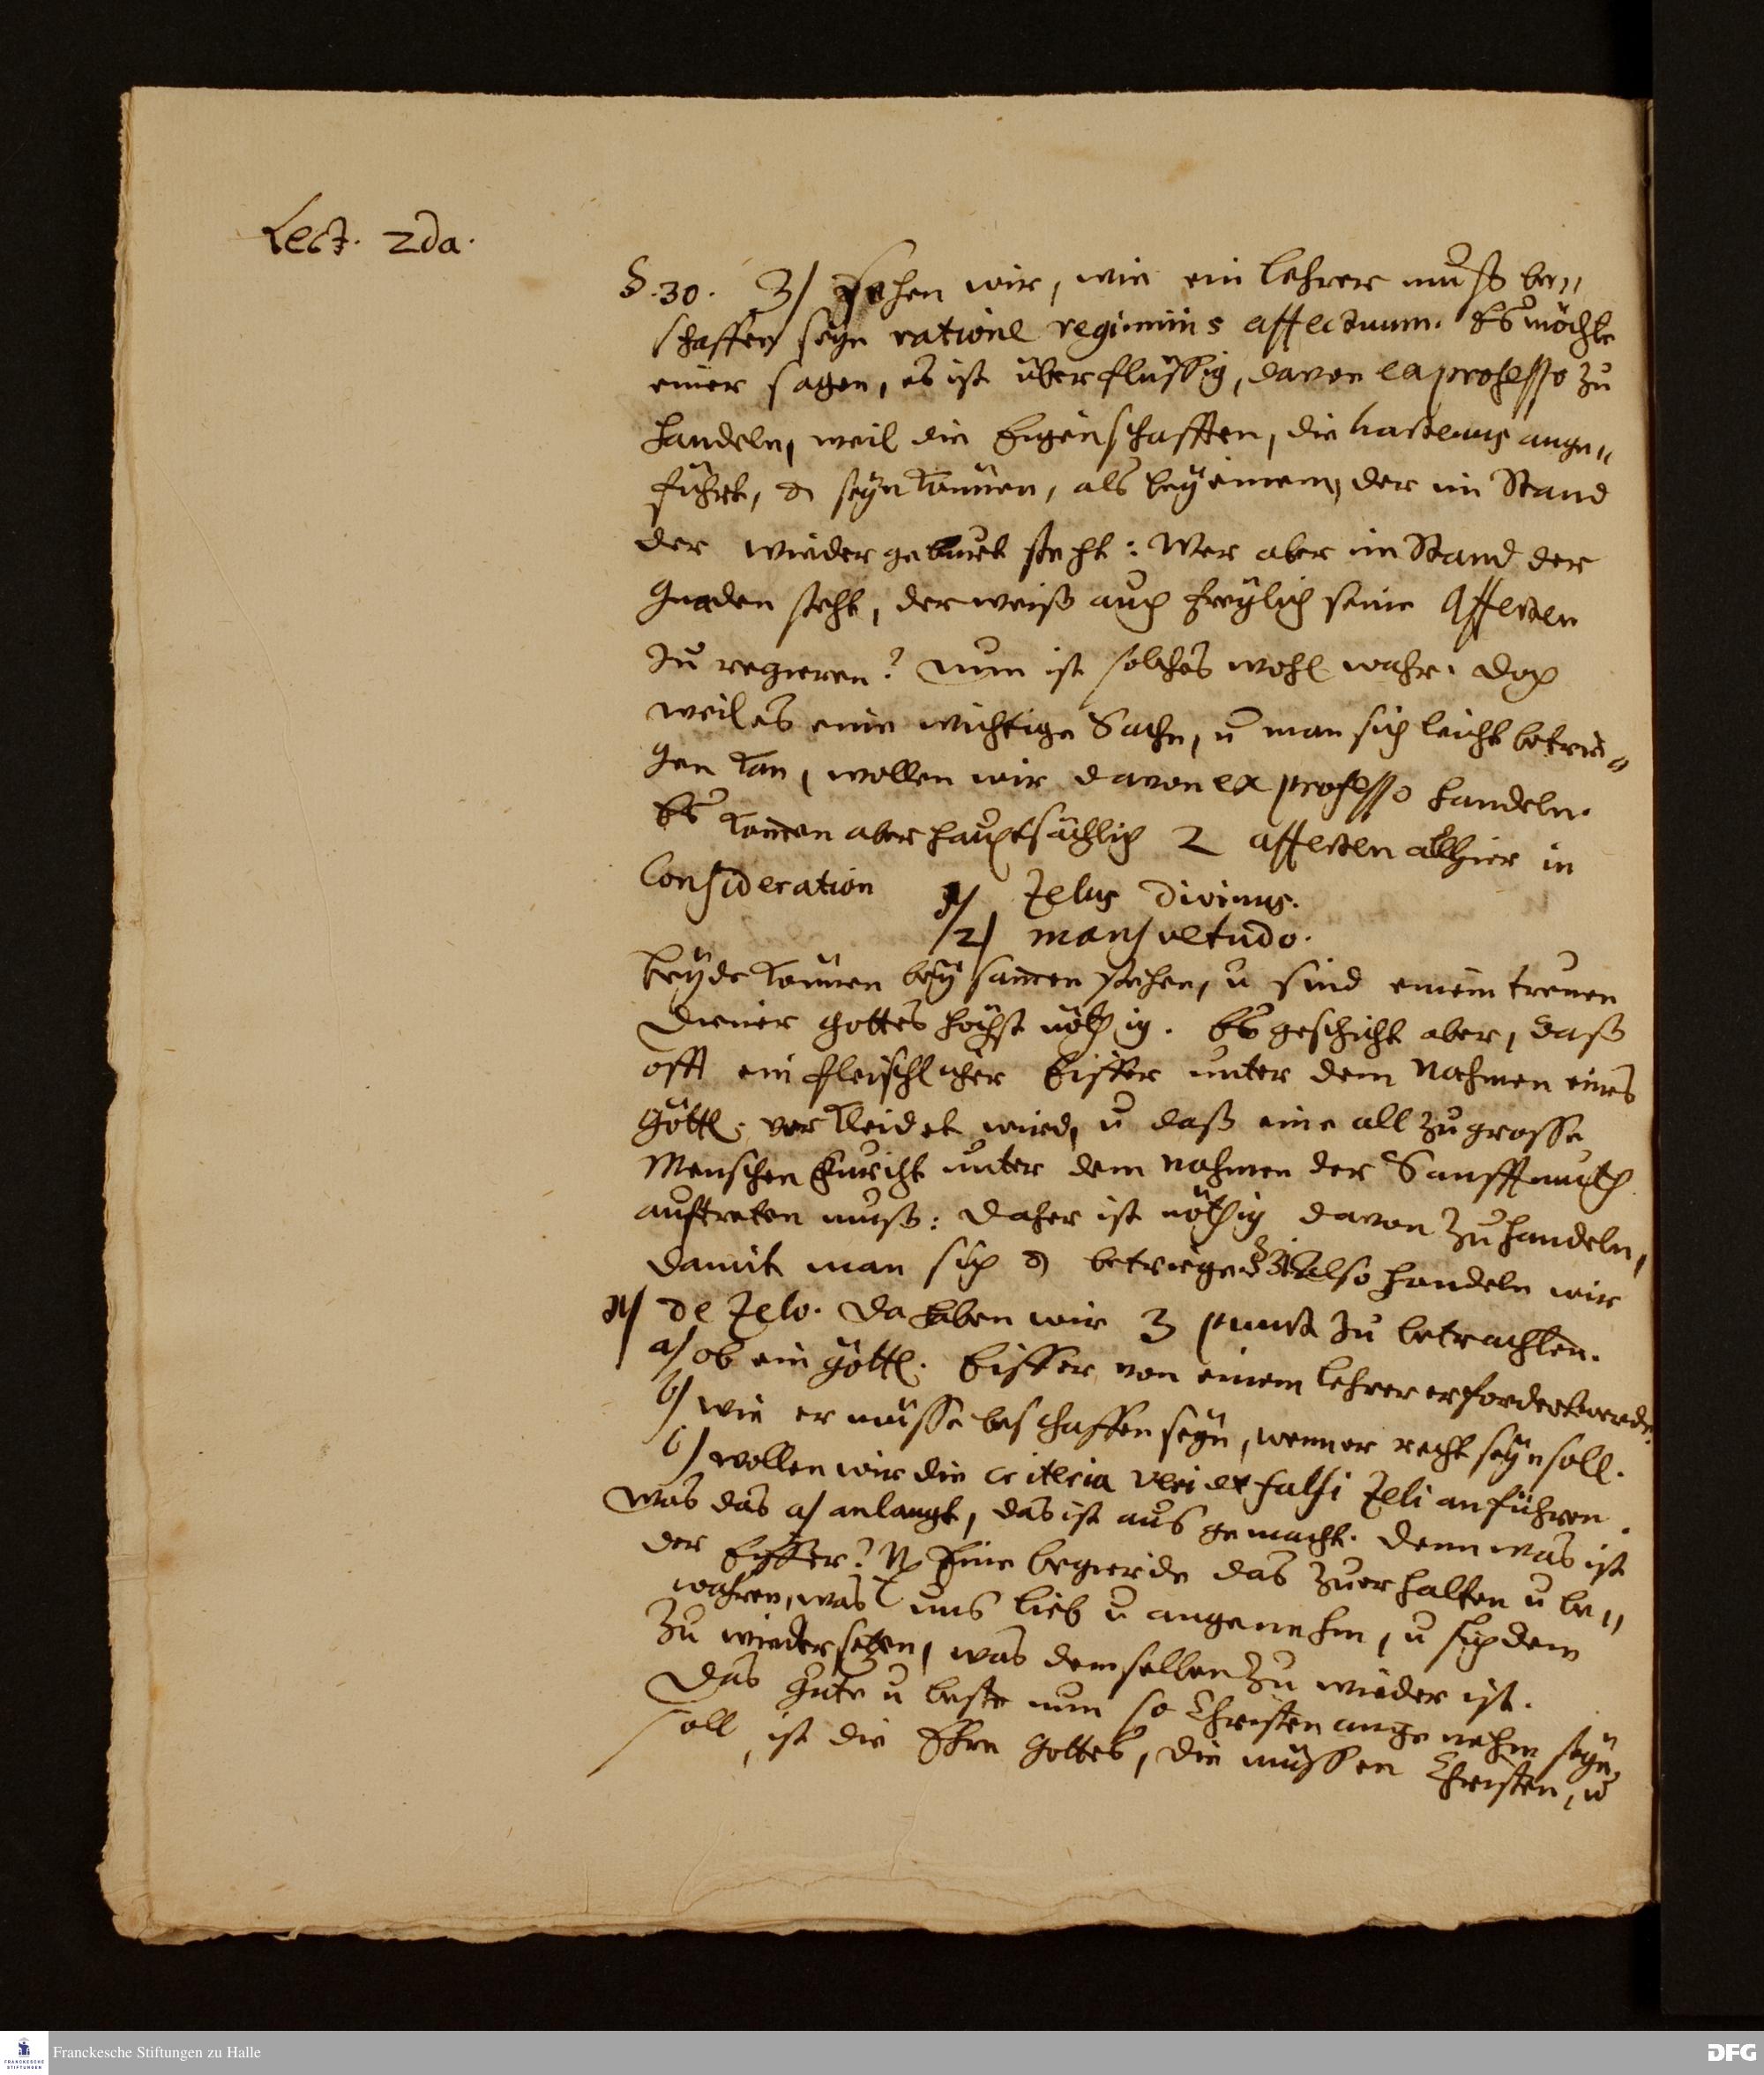 Lect. 2da.
§. 30. 3) Sehen wir, wie ein Lehrer muß be„
schaffen seyn ratione regiminis affectuum. Es möchte
einer sagen, es ist überflüssig, davon ex professo zu
handeln, weil die Eigenschafften, die hactenus ange„
führt, seyn können, als bey einem, der im Stand
der wiedergeburt steht: Wer aber im Stand der
Gnaden steht, der weiß auch freylich seine Affecten
zu regieren? Nun ist solches wohl wahr. doch
weil es eine wichtige Sache, u man sich leicht betrie„
gen kan, wollen wir davon ex professo handeln.
Es kom̅en aber hauptsächlich 2 affecten allhier in
Consideration 1) Zelus Divinus.
2) mansuetudo.
beyde können beysam̅en stehen, u sind einem treuen
Diener Gottes höchst nöthig. Es geschicht aber, daß
offt ein fleischlicher Eiffer unter dem Nahmen eines
Göttl. verkleidet wird, u daß eine allzugrosse
Menschenfurcht unter dem nahmen der Sanfftmuth
auftreten muß: daher ist nöthig davon zu handeln,
damit man sich betriege. also handeln wir
de Zelo. Da haben wir 3 punct zu betrachten.
a) ob ein göttl. Eiffer von einem Lehrer erfordert werde.
b) wie er müsse beschaffen seyn, wenn er recht seyn soll.
c) wollen wir die criteria veri et falsi Zeli anführen.
Was das a) anlangt, das ist ausgemacht. Denn was ist
der Eyffer? Eine begierde das zuerhalten u be„
wahren, was uns lieb u angenehm, u sich dem
zu wiedersetzen, was demselben zu wieder ist.
Das Gute u beste nun so Christen angenehm seyn
soll, ist die Ehre Gottes, die müssen Christen, u
Franckesche Stiftungen zu Halle
FRANCKESCHE
STIFTUNGEN
DFG